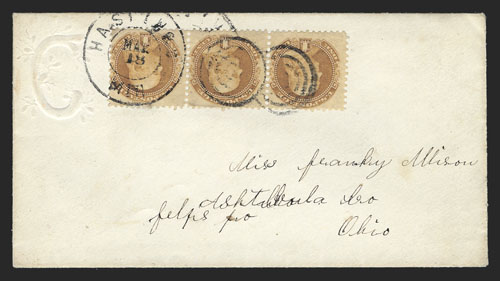 HASTINGS
MAY
18
MICH
Miss franky Allison
Ashtabula co
felps po
Ohio